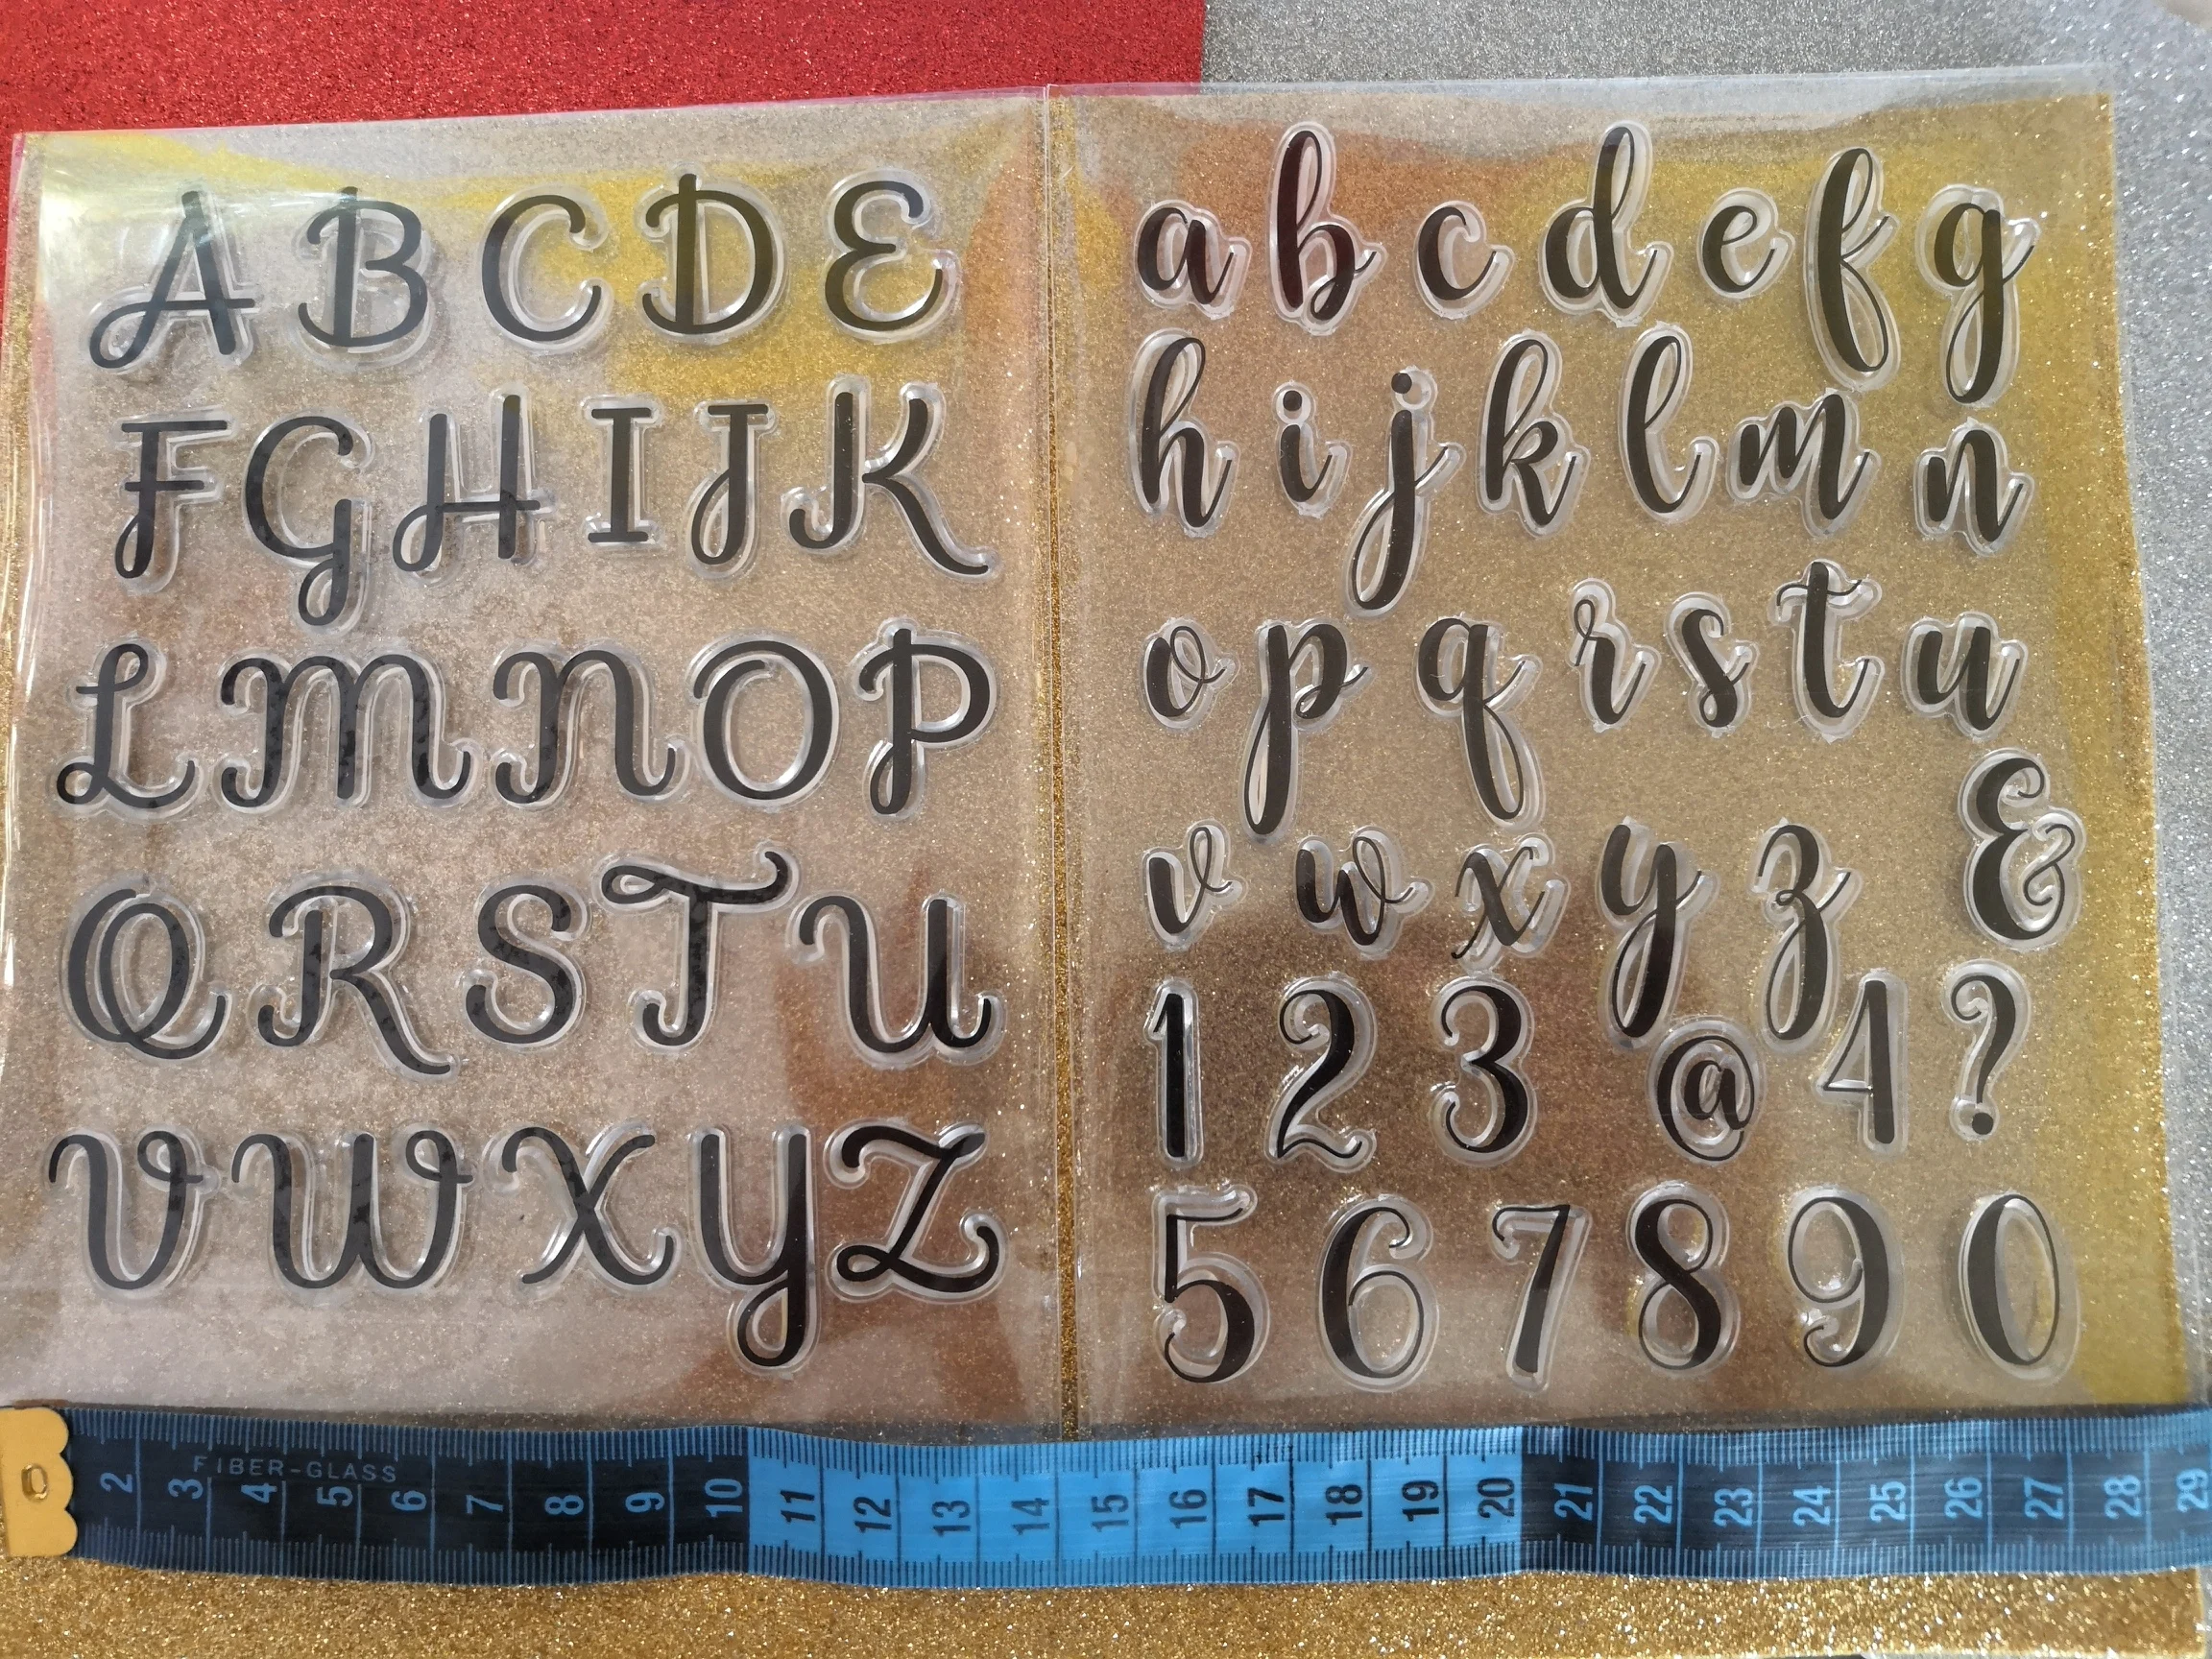 A B C D E
F G H I J K
L M N O P
Q R S T U
V W X Y Z
a b c d e f g
h i j k l m n
o p q r s t u
v w x y z &
1 2 3 @ 4 ?
5 6 7 8 9 0
FIBER-GLASS
0 2 3 4 5 6 7 8 9 10 11 12 13 14 15 16 17 18 19 20 21 22 23 24 25 26 27 28 29